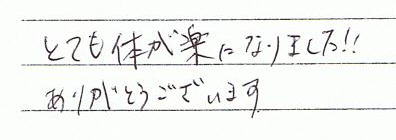 とても体が楽になりました!!
ありがとうございます